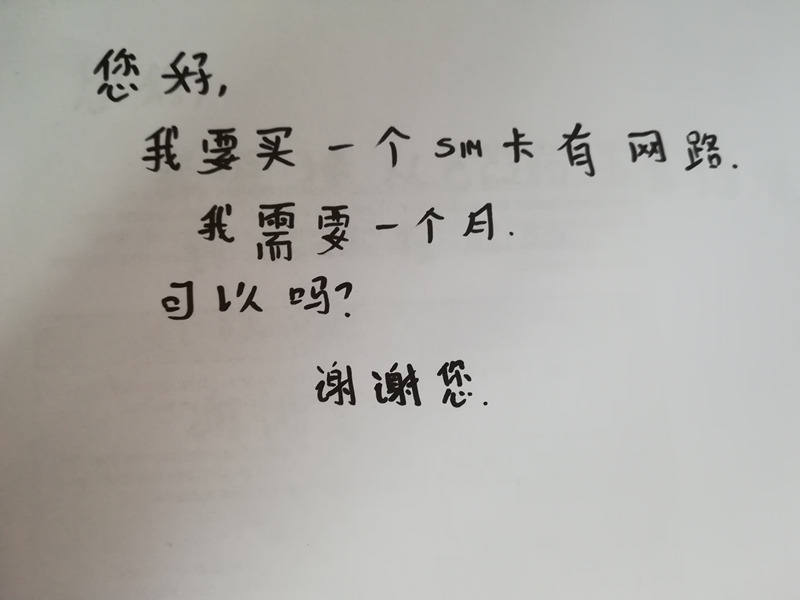 您好,
我要买一个SIM卡有网路.
我需要一个月.
可以吗?
谢谢您.